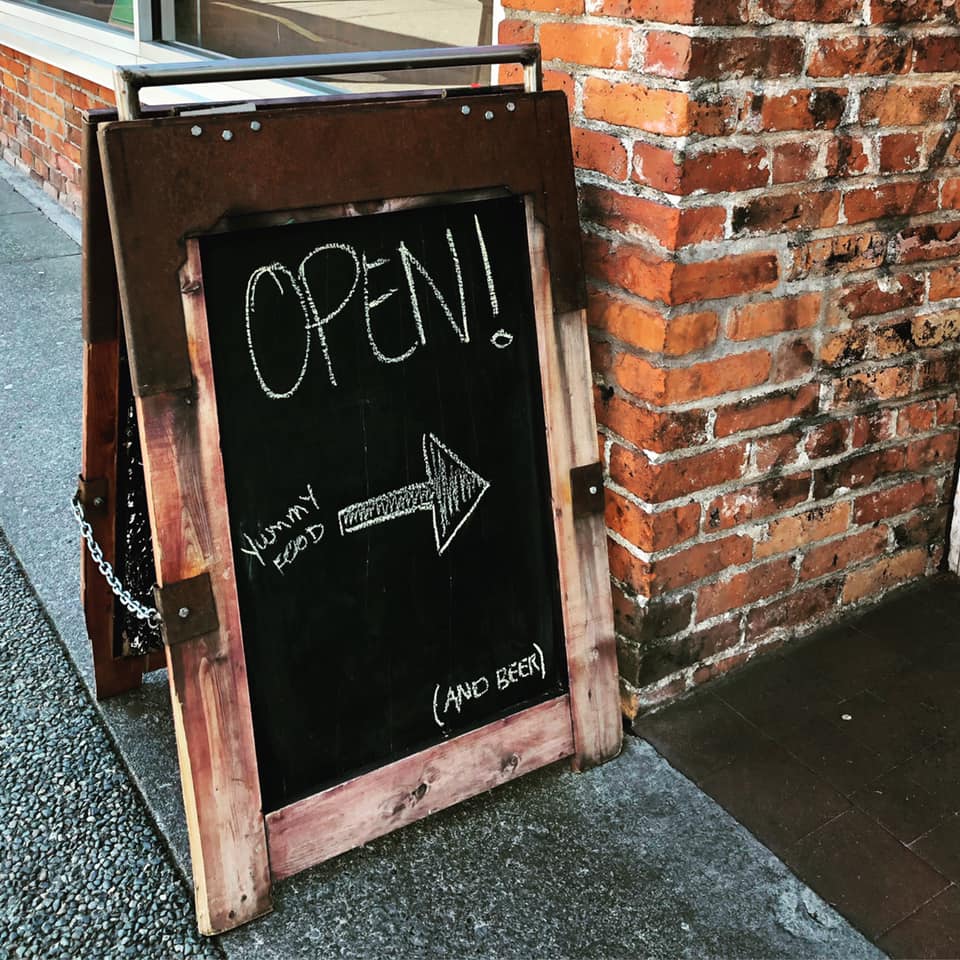 OPEN!
YUMMY
FOOD
(AND BEER)